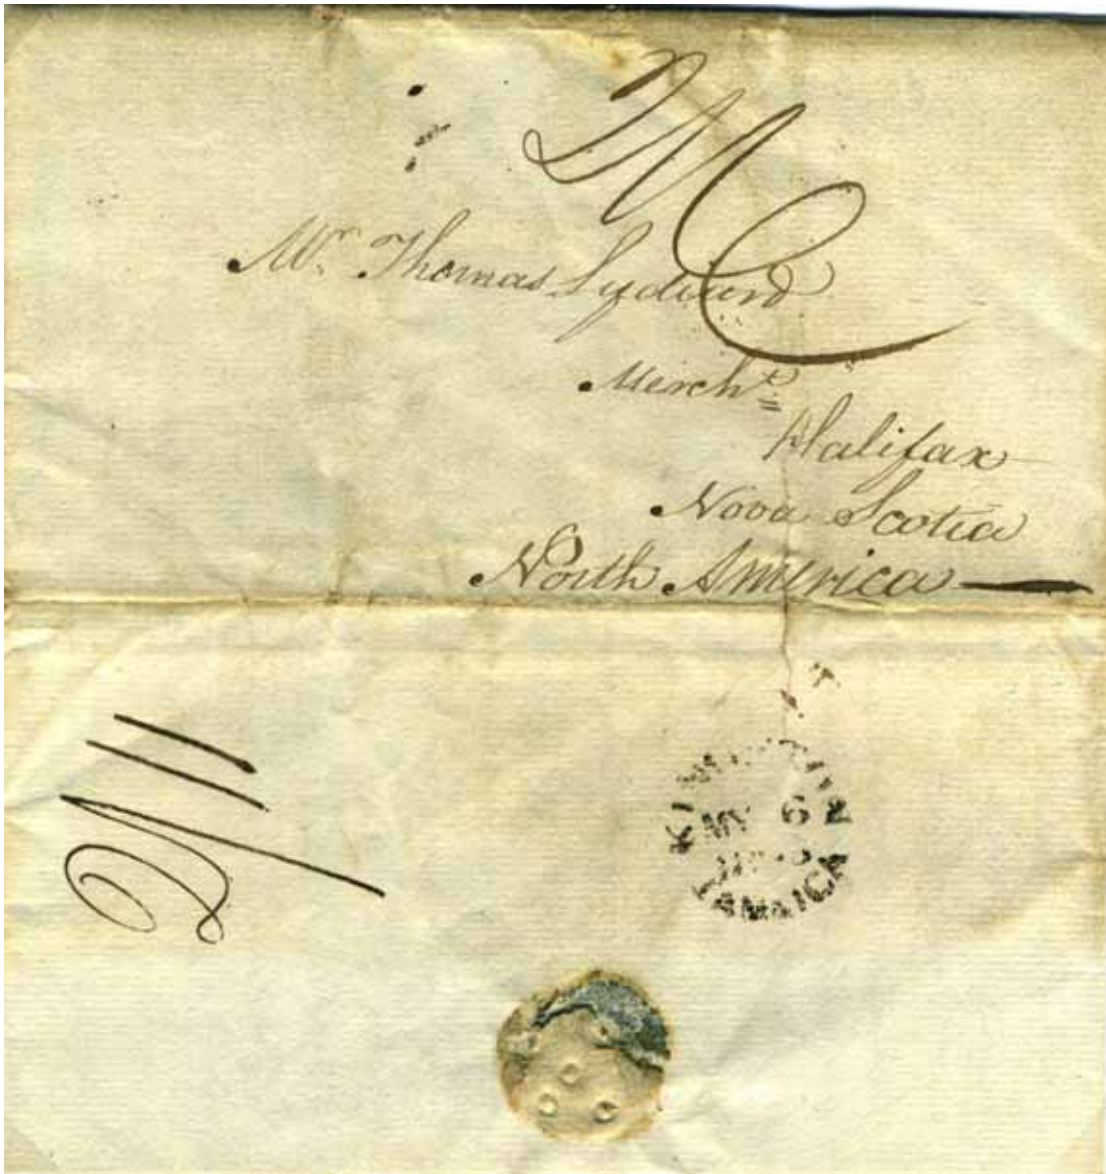 Mr. Thomas Lydiard
Mercht.
Halifax
Nova Scotia
North America
KINGSTON
MY 6
JAMAICA